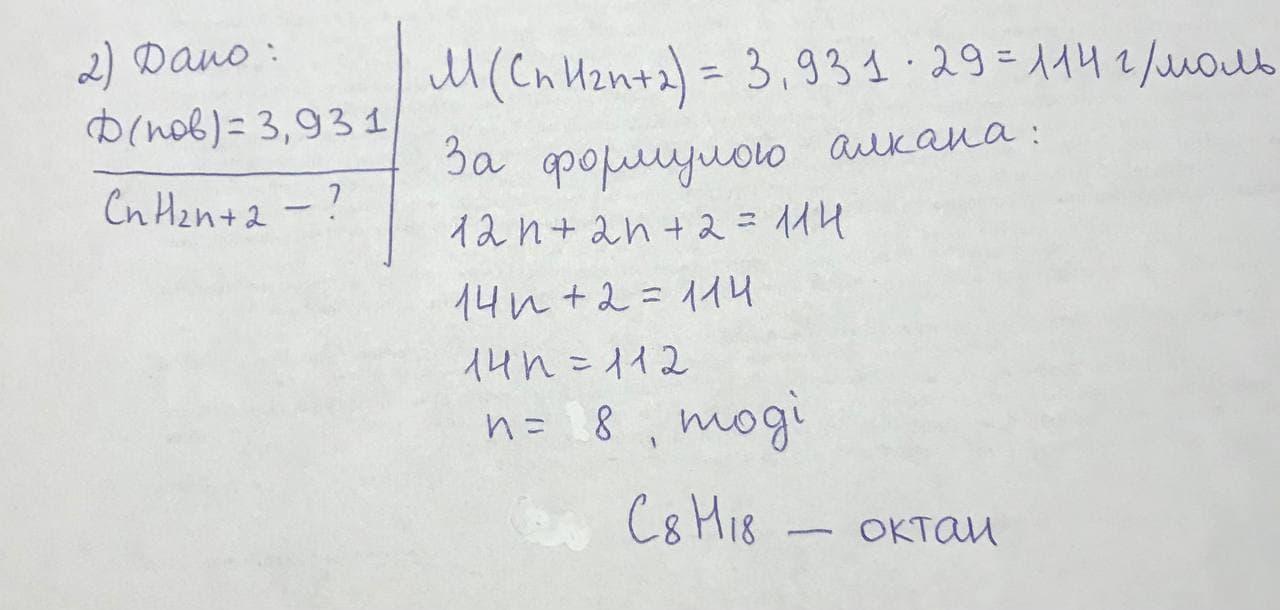 2) Дано:
D(пов) = 3,931
CnH2n+2 – ?
M(CnH2n+2) = 3,931 · 29 = 114 г/моль
За формулою алкана:
12n + 2n + 2 = 114
14n + 2 = 114
14n = 112
n = 8, тоді
C8H18 — октан